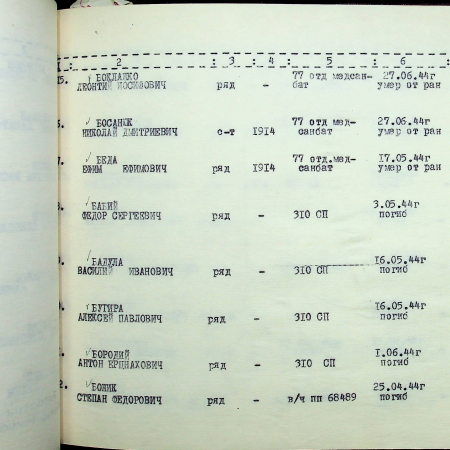 : 2 : 3 : 4 : 5 : 6 :
5. БОКЛАШКО 77 отд медсан- 27.06.44г
ЛЕОНТИЙ ИОСИФОВИЧ ряд - бат умер от ран
БОСАНЮК 77 отд мед- 27.06.44г
НИКОЛАЙ ДМИТРИЕВИЧ с-т 1914 санбат умер от ран
7. БЕДА 77 отд.мед- 17.05.44г
ЕФИМ ЕФИМОВИЧ ряд 1914 санбат умер от ран
БАБИЙ 3.05.44г
ФЕДОР СЕРГЕЕВИЧ ряд - 310 СП погиб
БАДУЛА 16.05.44г
ВАСИЛИЙ ИВАНОВИЧ ряд - 310 СП погиб
БУГИРА 16.05.44г
АЛЕКСЕЙ ПАВЛОВИЧ ряд - 310 СП погиб
БОРОДИЙ 1.06.44г
АНТОН ряд - 310 СП погиб
2. БОЖИК 25.04.44г
СТЕПАН ФЕДОРОВИЧ ряд - в/ч пп 68489 погиб